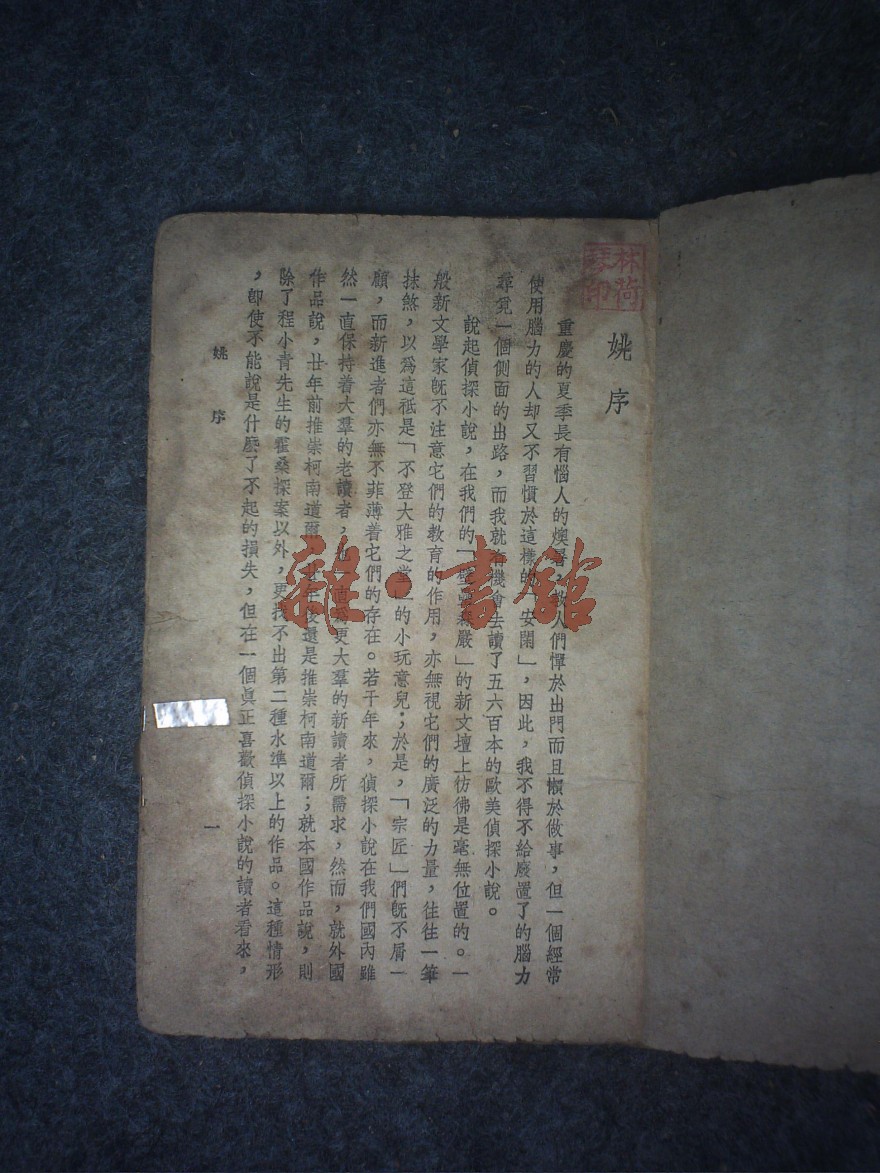 姚序
重慶的夏季長有惱人的燠暑，教人們憚於出門而且懶於做事，但一個經常
使用腦力的人却又不習慣於這樣的「安閑」，因此，我不得不給廢置了的腦力
尋覓一個側面的出路，而我就有機會去讀了五六百本的歐美偵探小說。
說起偵探小說，在我們的「壁壘森嚴」的新文壇上仿彿是毫無位置的。一
般新文學家旣不注意它們的教育的作用，亦無視它們的廣泛的力量，往往一筆
抹煞，以爲這祗是「不登大雅之堂」的小玩意兒；於是，「宗匠」們旣不屑一
顧，而新進者們亦無不菲薄着它們的存在。若干年來，偵探小說在我們國內雖
然一直保持着大羣的老讀者，也一直爲更大羣的新讀者所需求，然而，就外國
作品說，廿年前推崇柯南道爾，廿年後還是推崇柯南道爾；就本國作品說，則
除了程小青先生的霍桑探案以外，更找不出第二種水準以上的作品。這種情形
，卽使不能說是什麽了不起的損失，但在一個眞正喜歡偵探小說的讀者看來，
姚序
一
林荷
琴印
雜·書館